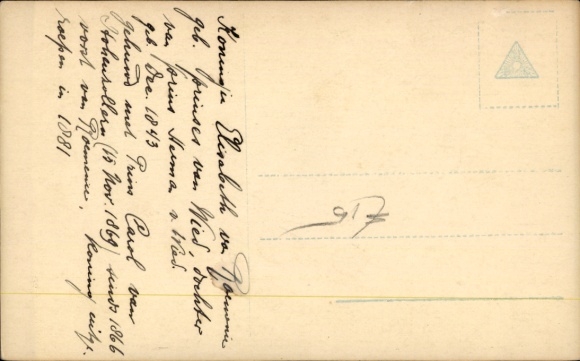 Koningin Elisabeth van Roemenie
geb. prinses van Wied, dochter
van prins Herman v. Wied.
geb. Dec. 1843
gehuwd met Prins Carol van
Hohenzollern (15 Nov. 1869) sinds 1866
vorst van Roemenie, Koning uitge-
roepen in 1881
917